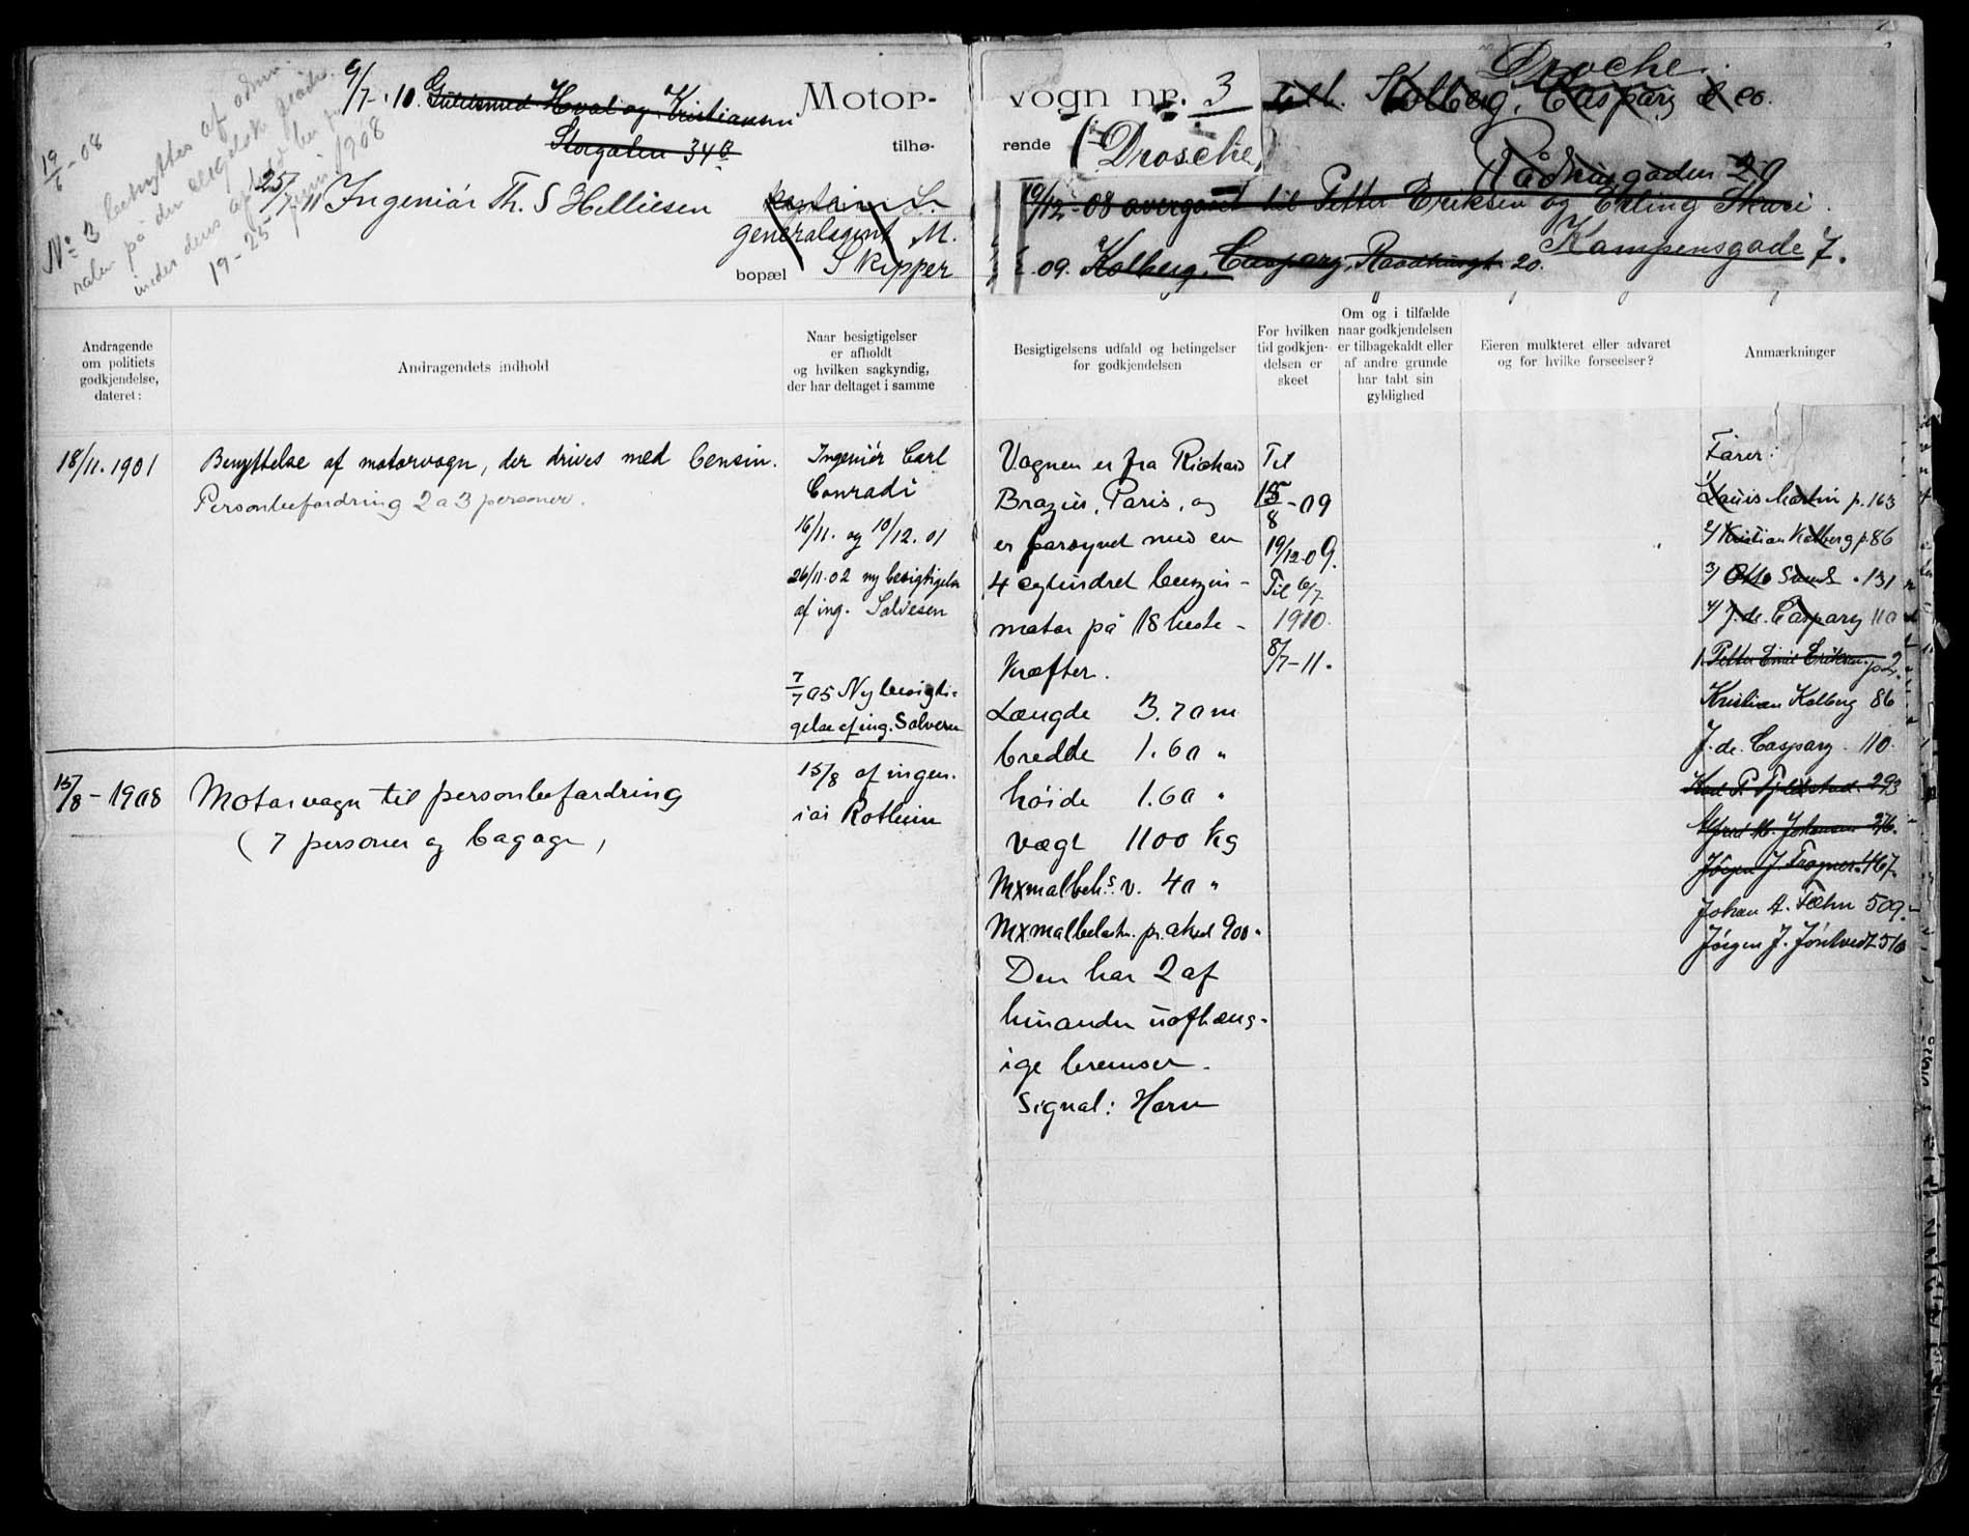 19/6 - 08
No 3 benyttes af
under deres
19-25 juni 1908
9/7-10. Guldsmed Hval og Kristiansen
Storgaten 34B
25/7 11 Ingeniør Th. S Helliesen
Motor-
tilhø-
kaptein S.
generalagent M.
bopæl Skipper
vogn nr. 3
Droche.
Kolberg, Caspary & Co.
rende (Drosche)
Rådhusgaden 20
19/12-08 overgaaet til Petter Eriksen og Erling Skari.
09. Kolberg, Caspary, Raadhusgt 20. Kampensgade 7.
Andragende
om politiets
godkjendelse,
dateret:
Andragendets indhold
Naar besigtigelser
er afholdt
og hvilken sagkyndig,
der har deltaget i samme
Besigtigelsens udfald og betingelser
for godkjendelsen
For hvilken
tid godkjen-
delsen er
skeet
Om og i tilfælde
naar godkjendelsen
er tilbagekaldt eller
af andre grunde
har tabt sin
gyldighed
Eieren mulkteret eller advaret
og for hvilke forseelser?
Anmærkninger
18/11. 1901
Benyttelse af motorvogn, der drives med bensin.
Personbefordring 2 a 3 personer.
Ingeniør Carl
Conradi
16/11. og 10/12. 01
26/11.02 ny besigtigelse
af ing. Solvesen
7/7 05 Ny besigti-
gelse af ing. Solvesen
15/8 - 1908
Motorvogn til personbefordring
(7 personer og bagage)
15/8 af ingen-
iør Rotheim
Vognen er fra Richard
Brazier, Paris, og
er forsynet med en
4 cylindret benzin-
motor på 18 heste-
kræfter.
Længde 3.70 m
bredde 1.60 "
høide 1.60 "
vægt 1100 kg
Mxmalbels. v. 40 "
Mxmalbelastn. pr. aksel 900 "
Den har 2 af
hinanden uafhæng-
ige bremser.
Signal: Horn
Til
15/8 - 09
19/12-09.
Til 6/7
1910.
8/7-11.
Fører:
1/ Louis Martin p. 163
2/ Kristian Kolberg p. 86
3/ Otto Sand " 131
4/ J. de. Caspary 110
Petter Emil Eriksen p. 2.
Kristian Kolberg 86
J. de. Caspary. 110.
Karl P. Fjeldstad. 293
Alfred M. Johansen 276.
Jørgen J. Fragner. 467.
Johan A. Fæhn 509.
Jørgen J. Jøntvedt 510